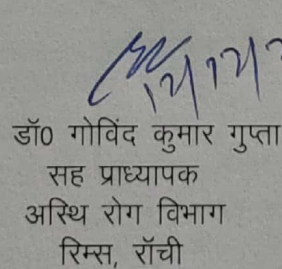 डॉ0 गोविंद कुमार गुप्ता
सह प्राध्यापक
अस्थि रोग विभाग
रिम्स, रॉची